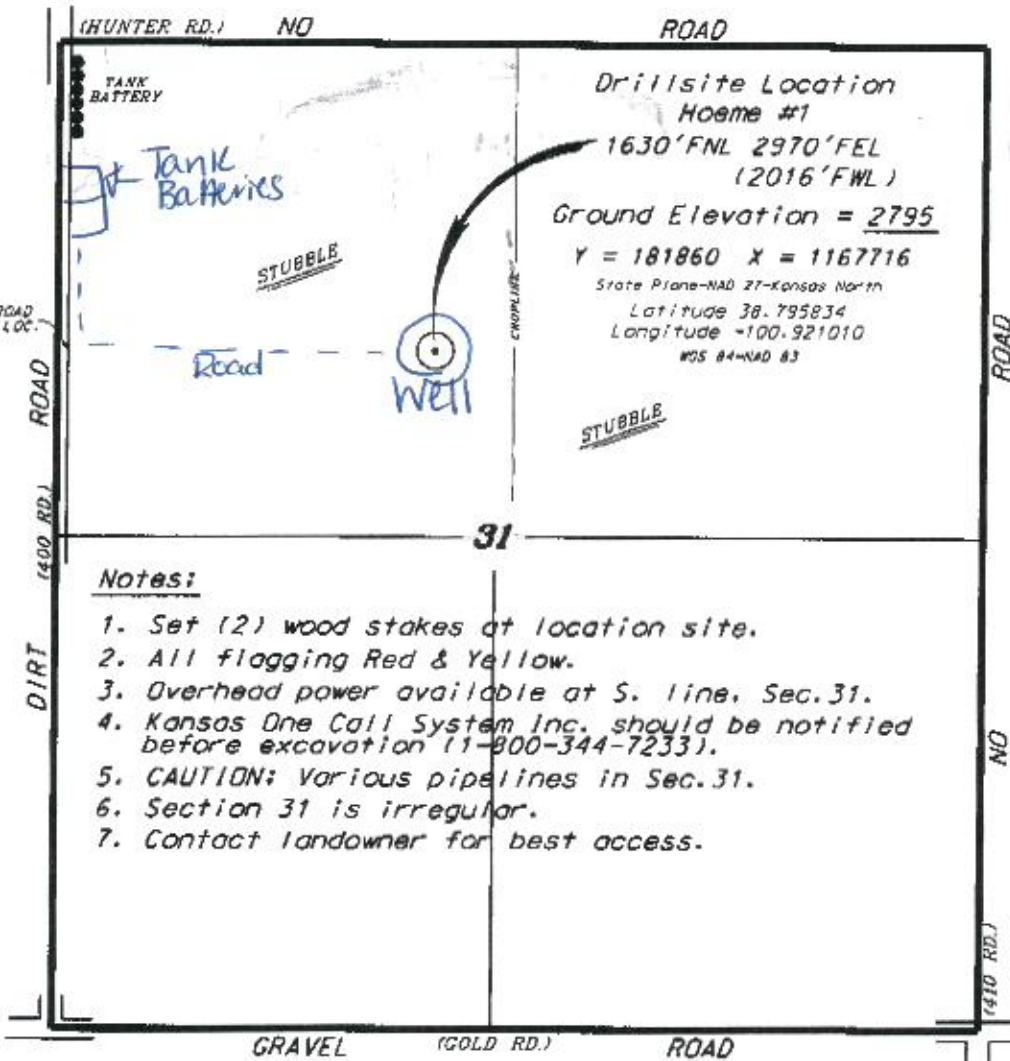 (HUNTER RD.) NO ROAD
TANK
BATTERY
Tank
Batteries
Drillsite Location
Hoeme #1
1630'FNL 2970'FEL
(2016'FWL)
Ground Elevation = 2795
Y = 181860 X = 1167716
State Plane-NAD 27-Kansas North
Latitude 38.795834
Longitude -100.921010
WGS 84-NAD 83
STUBBLE
CROPLINE
ROAD
LOC.
Road
Well
STUBBLE
DIRT (400 RD.) ROAD
NO ROAD
(410 RD.)
31
Notes:
1. Set (2) wood stakes at location site.
2. All flagging Red & Yellow.
3. Overhead power available at S. line, Sec.31.
4. Kansas One Call System Inc. should be notified
before excavation (1-800-344-7233).
5. CAUTION: Various pipelines in Sec.31.
6. Section 31 is irregular.
7. Contact landowner for best access.
GRAVEL (GOLD RD.) ROAD